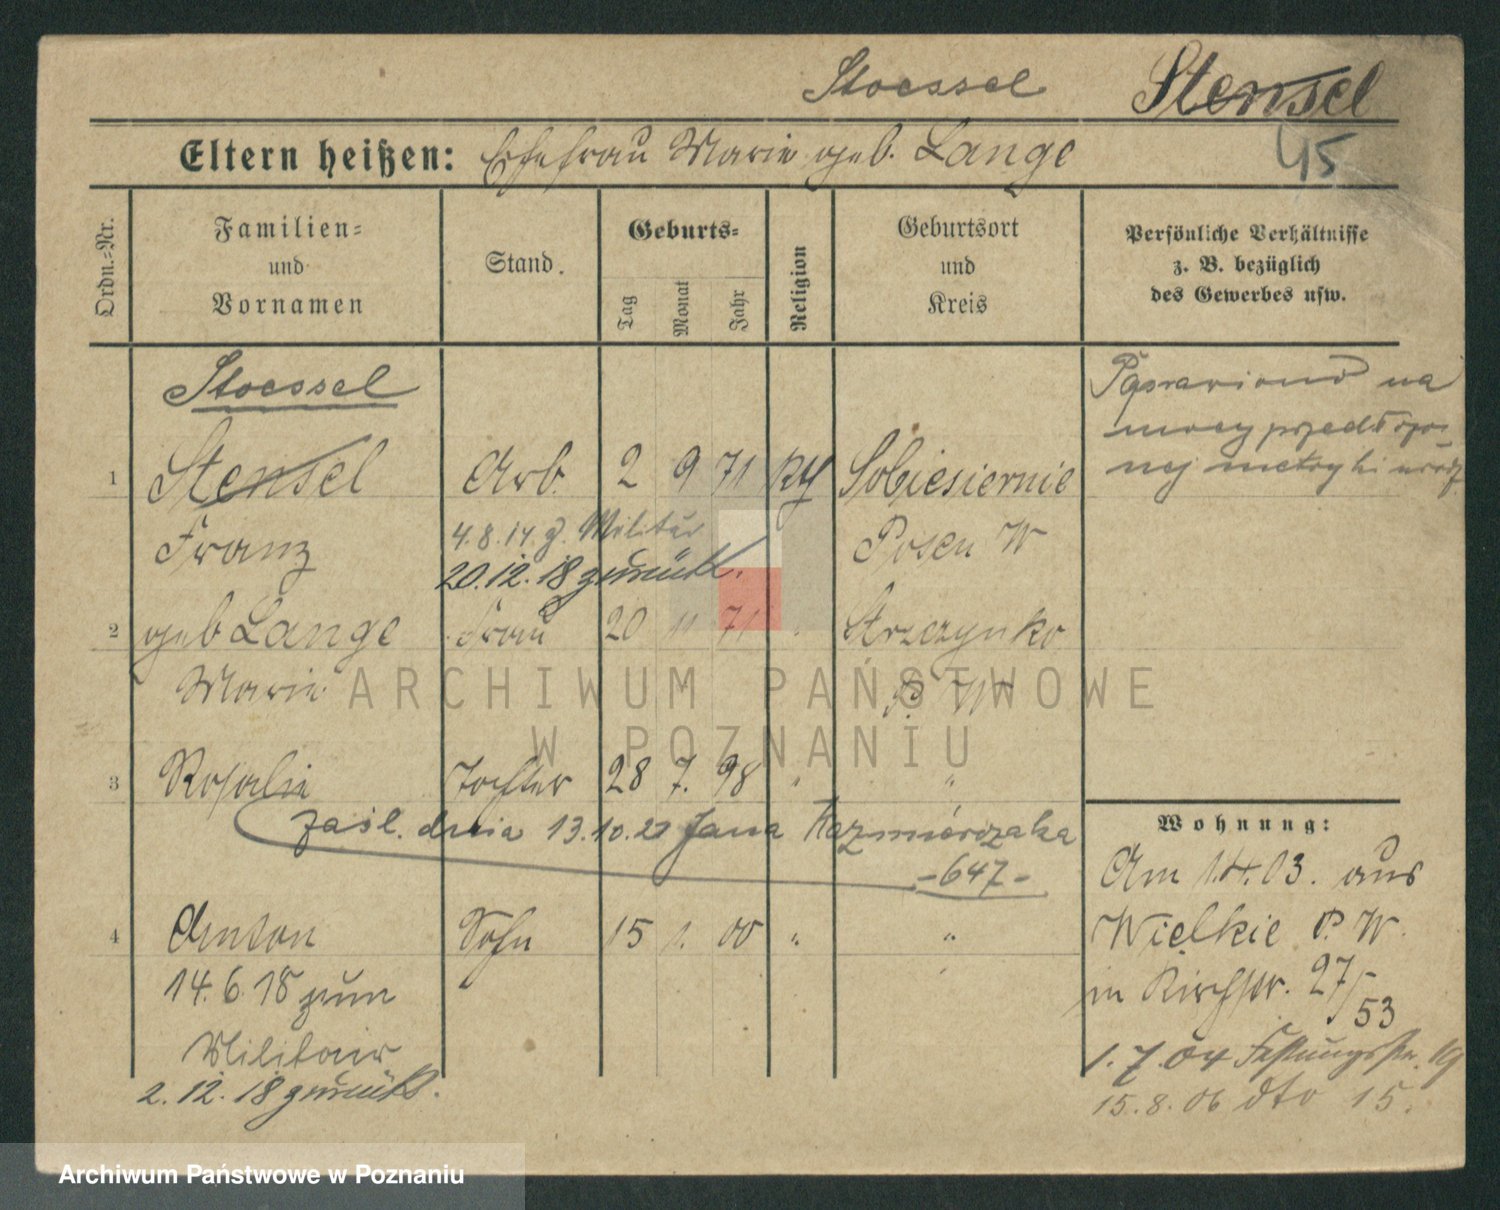 Stoessel Stensel
Eltern heißen: Ehefrau Marie geb. Lange 45
Ordn.-Nr.
Familien-
und
Vornamen
Stand.
Geburts-
Tag
Monat
Jahr
Religion
Geburtsort
und
Kreis
Persönliche Verhältnisse
z. B. bezüglich
des Gewerbes usw.
Stoessel
1 Stensel Arb. 2 9 71 Sobiesiernie
Franz Posen W
4.8.14 z. Militär
20.12.18 zurück.
2 geb Lange Frau 20 11 71 " Strzczynko
Marie P. W
3 Rosalie Tochter 28 7. 98 " "
zaśl. dnia 13.10.21 Jana Kazmierczaka
-647-
4 Anton Sohn 15 1. 00 " "
14.6.18 zum
Militair
2.12.18 zurück.
Poprawiono na
mocy przedłożo-
nej metryki urodz.
Wohnung:
Am 1.4.03. aus
Wielkie P. W.
in Kirchstr. 27/53
1.7.04 Festungsstr. 19
15.8.06 dto 15.
ARCHIWUM PAŃSTWOWE
W POZNANIU
Archiwum Państwowe w Poznaniu